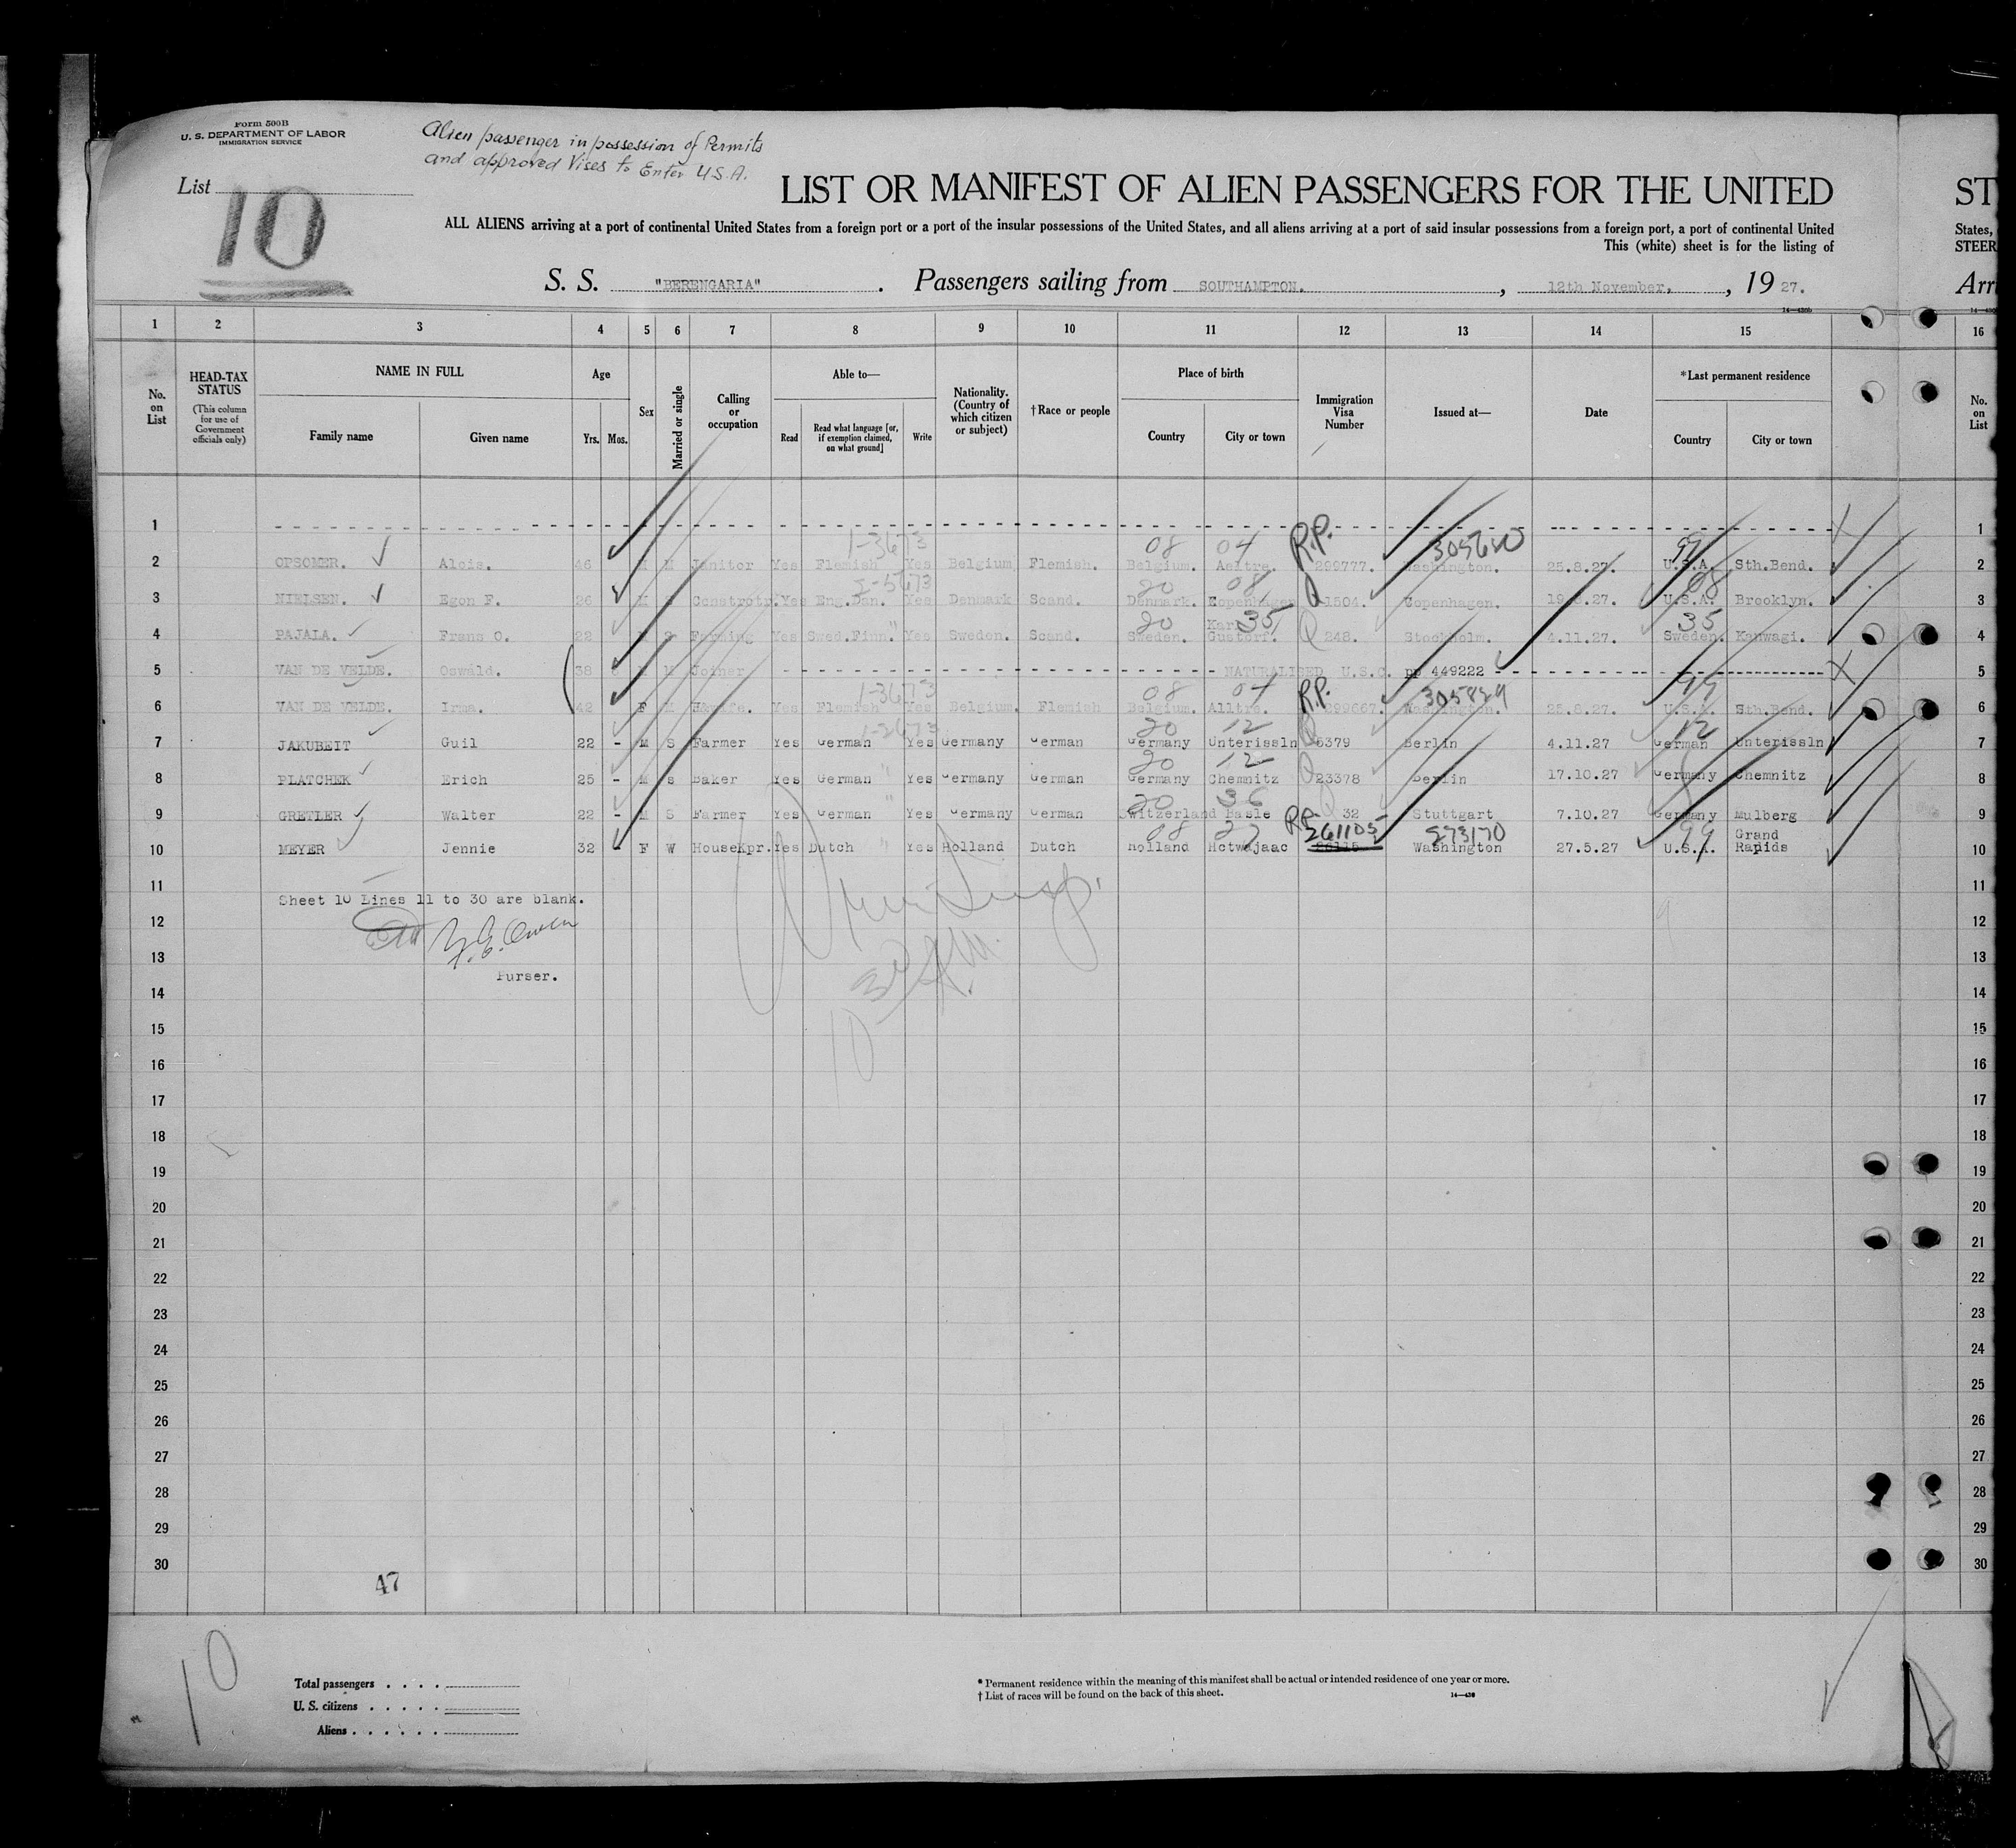 Form 500B
U. S. DEPARTMENT OF LABOR
IMMIGRATION SERVICE
Alien passenger in possession of Permits
and approved Vises to Enter U.S.A.
List 10
LIST OR MANIFEST OF ALIEN PASSENGERS FOR THE UNITED ST
ALL ALIENS arriving at a port of continental United States from a foreign port or a port of the insular possessions of the United States, and all aliens arriving at a port of said insular possessions from a foreign port, a port of continental United States,
This (white) sheet is for the listing of STEER
S. S. "BERENGARIA". Passengers sailing from SOUTHAMPTON, 12th November, 1927. Arri
14—430b
1 2 3 4 5 6 7 8 9 10 11 12 13 14 15 16
No. on List HEAD-TAX STATUS (This column for use of Government officials only) NAME IN FULL Family name Given name Age Yrs. Mos. Sex Married or single Calling or occupation Able to— Read Read what language [or, if exemption claimed, on what ground] Write Nationality. (Country of which citizen or subject) †Race or people Place of birth Country City or town Immigration Visa Number Issued at— Date *Last permanent residence Country City or town No. on List
1 X 1
1-3673 08 04 R.P. 305640 99
2 OPSOMER. Alois. 46 M M Janitor Yes Flemish Yes Belgium Flemish. Belgium. Aeltre. 299777. Washington. 25.8.27. U.S.A. Sth.Bend. 2
20 08 Q
3 NIELSEN. Egon F. 26 M Constrctr. Yes Eng.Dan. Yes Denmark Scand. Denmark. Kopenhagen 1504. Copenhagen. U.S.A. Brooklyn. 3
20 35 Q 35
4 PAJALA. Frans O. 22 M S Farming Yes Swed.Finn. Yes Sweden. Scand. Sweden. 248. Stockholm. 4.11.27. Sweden. 4
5 VAN DE VELDE. Oswald. 38 M M Joiner NATURALISED U.S.C. pp 449222 X 5
1-3673 08 04 R.P. 305829 99
6 VAN DE VELDE. Irma. 42 F M H&wife. Yes Flemish Yes Belgium. Flemish Belgium. Alltre. Washington. 25.8.27. U.S.A. Sth.Bend. 6
1-2673 20 12 Q 12
7 JAKUBEIT Guil 22 - M S Farmer Yes German Yes Germany German Germany Unterissln 5379 Berlin 4.11.27 German Unterissln 7
20 12 Q
8 PLATCHEK Erich 25 - M S Baker Yes German " Yes Germany German Germany Chemnitz 23378 Berlin 17.10.27 Germany Chemnitz 8
20 36 Q
9 GRETLER Walter 22 - M S Farmer Yes German " Yes Germany German Switzerland Basle 32 Stuttgart 7.10.27 Germany Mulberg 9
08 27 R.P. 261105 273170 99
10 MEYER Jennie 32 - F W HouseKpr. Yes Dutch " Yes Holland Dutch Holland Hotwajaac Washington 27.5.27 U.S.A. Grand Rapids 10
11 11
Sheet 10 Lines 11 to 30 are blank.
12 12
13 13
Purser.
14 14
15 15
16 16
17 17
18 18
19 19
20 20
21 21
22 22
23 23
24 24
25 25
26 26
27 27
28 28
29 29
30 30
47
10
Total passengers . . . .
U. S. citizens . . . . .
Aliens . . . . . .
* Permanent residence within the meaning of this manifest shall be actual or intended residence of one year or more.
† List of races will be found on the back of this sheet.
14—430